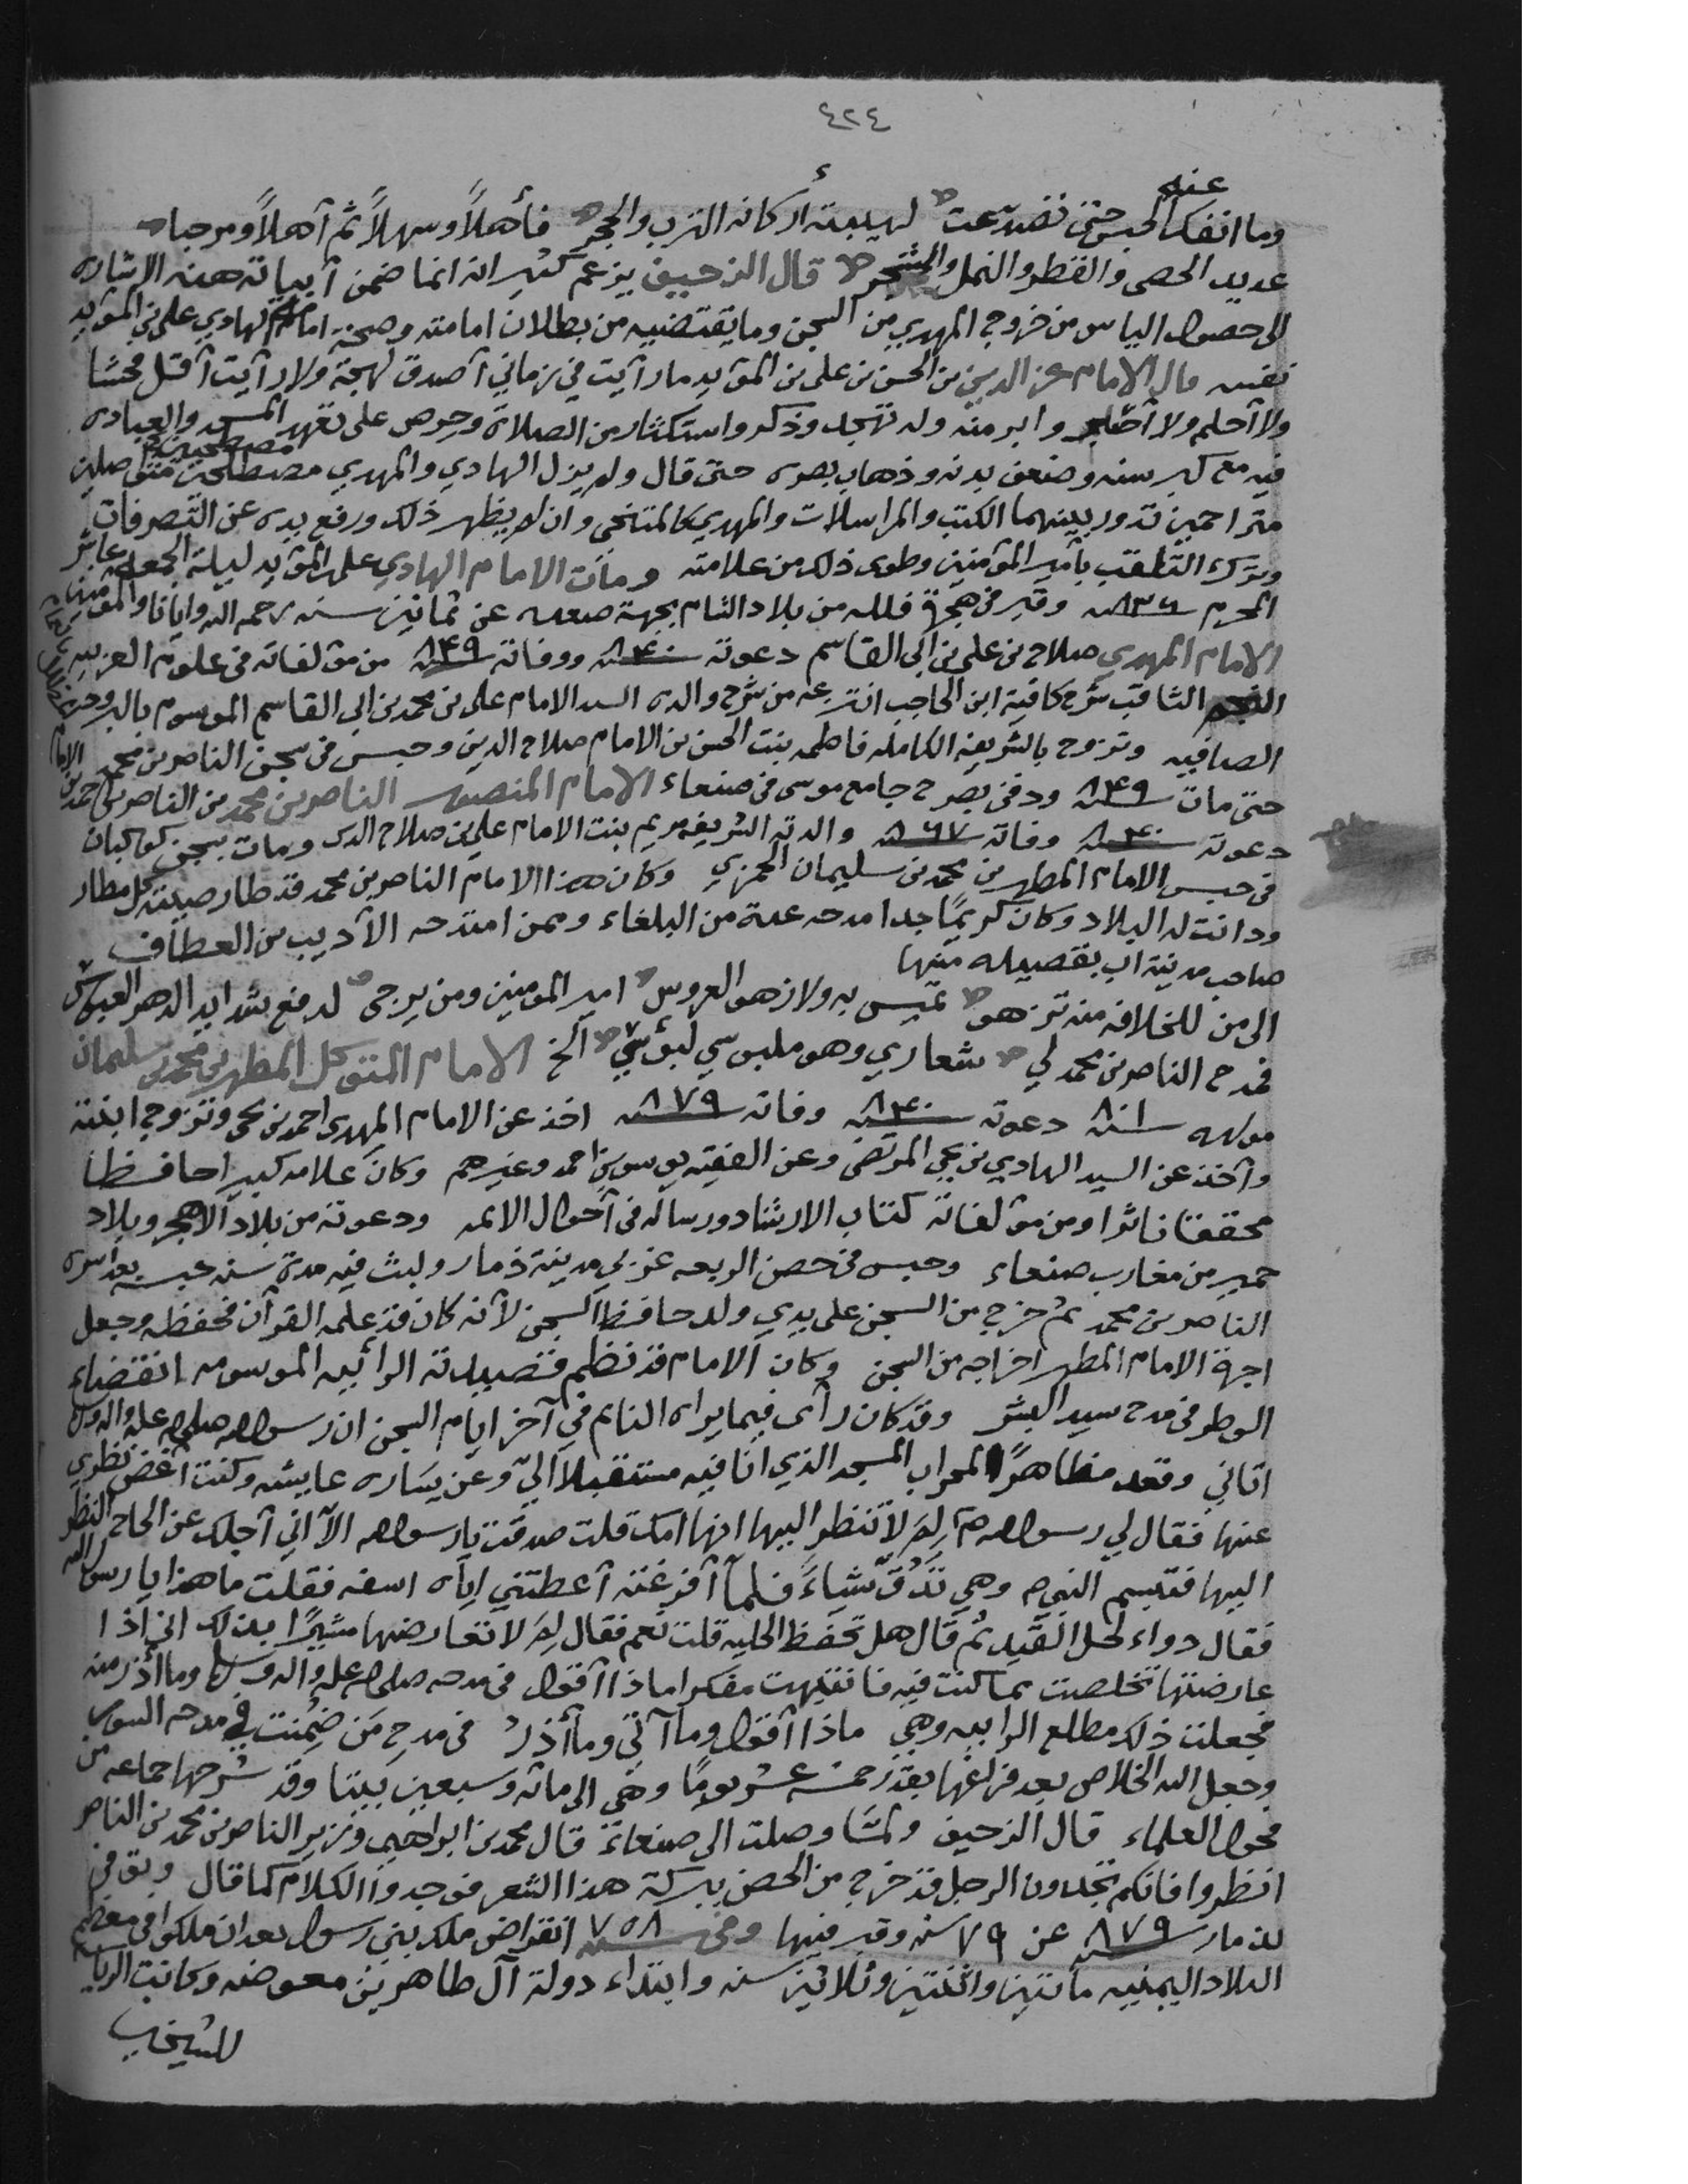 ٤٢٤
وما انفك عنه الحبس حتى تصدعت لهيبته أركانه الترب والحجر فأهلاً وسهلاً ثم أهلاً ومرحبا
عديد الحصى والقطر والنمل والشجر قال الزحيف يزعم كثير انه انما ضمن أبياته هذه الاشاره
الى حصول الياس من خروج المهدي من السجن وما يقتضيه من بطلان امامته وصحة امامة الهادي علي بن المؤيد
نفسه قال الامام عز الدين بن الحسن بن علي بن المؤيد ما رأيت في زماني أصدق لهجة ولا رأيت أقل فحشا
ولا أحلم ولا أصبر وابر منه وله تهجد وذكر واستكثار من الصلاة وحرص على تعهد المسجد والعباده
فيه مع كبر سنه وضعف بدنه وذهاب بصره حتى قال ولم يزل الهادي والمهدي مصطلحين متواصلين
متراحمين تدور بينهما الكتب والمراسلات والمهدي كالمتنحي وان لم يظهر ذلك ورفع يده عن التصرفات
وترك التلقب بأمير المؤمنين وطوى ذلك من علامته ومات الامام الهادي علي المؤيد ليلة الجمعه عاشر
المحرم سنة ٨٣٦ وقبر في هجرة فلله من بلاد الشام بجهة صعده عن ثمانين سنه رحمه الله وايانا والمؤمنين
الامام المهدي صلاح بن علي بن أبي القاسم دعوته سنة ٨٤٠ ووفاته سنة ٨٤٩ من مؤلفاته في علوم العربيه
النجم الثاقب شرح كافية ابن الحاجب انتزعه من شرح والده السيد الامام علي بن محمد بن ابي القاسم الموسوم بالبرود
الصافيه وتزوج بالشريفة الكامله فاطمه بنت الحسن بن الامام صلاح الدين وحبس في سجن الناصر بن محمد
حتى مات سنة ٨٤٩ ودفن بصرح جامع موسى في صنعاء الامام المنصور الناصر بن محمد بن الناصر بن احمد بن الامام
دعوته سنة ٨٤٠ وفاته سنة ٨٦٧ والدته الشريفه مريم بنت الامام علي بن صلاح الدين ومات بسجن كوكبان
في حبس الامام المطهر بن محمد بن سليمان الحمزي وكان هذا الامام الناصر بن محمد قد طار صيته كل مطار
ودانت له البلاد وكان كريمًا جدا مدحه عدة من البلغاء وممن امتدحه الأديب بن العطاف
صاحب مدينة اب بقصيده منها
الى من للخلافه منه تزهو تميس به ولا زهو العروس امير المومنين ومن يرجى لدفع شدايد الدهر العبوس
فمدح الناصر بن محمد لي شعاري وهو ملبوسي لبؤسي الخ الامام المتوكل المطهر بن محمد بن سليمان
مولده سنة ٨٠١ دعوته سنة ٨٤٠ وفاته سنة ٨٧٩ اخذ عن الامام المهدي احمد بن يحيى وتزوج ابنته
وأخذ عن السيد الهادي بن يحيى المرتضى وعن الفقيه يوسف بن احمد وغيرهم وكان علامه كبيرا حافظا
محققا ناثرا ومن مؤلفاته كتاب الارشاد ورساله في أحوال الائمه ودعوته من بلاد الاهجر وبلاد
حمير من مغارب صنعاء وحبس في حصن الربعه غربي مدينة ذمار ولبث فيه مدة سنه حبسه بعد أسره
الناصر بن محمد ثم خرج من السجن على يدي ولد حافظ السجن لأنه كان قد علمه القرآن فحفظه وجعل
اجرة الامام المطهر اخراجه من السجن وكان الامام قد نظم قصيدته الرائيه الموسومه انقضاء
الوطر في مدح سيد البشر وقد كان رأى فيما يراه النائم في آخر ايام السجن ان رسول الله صلى الله عليه واله وسلم
اتاني وقعد مظاهرًا لمحراب المسجد الذي انا فيه مستقبلا اليّ وعن يساره عايشه وكنت أغض نظري
عنها فقال لي رسول الله صم لِمَ لا تنظر اليها انها امك قلت صدقت يا رسول الله الا أني أجلك عن الحاح النظر
اليها فتبسم النبي م وهي تدُقّ شياءً فلما أفرغته أعطتني اياه اسفه فقلت ما هذا يا رسول الله
فقال دواء لحل القيد ثم قال هل تحفظ الحليه قلت نعم فقال لِمَ لا تعارضها مشيرًا بذلك اني اذا
عارضتها تخلصت مما كنت فيه فانتبهت مفكرا ماذا أقول في مدحه صلى الله عليه واله وسلم وما أذر منه
فجعلت ذلك مطلع الرائيه وهي ماذا أقول وما آتي وما أذر في مدح من ضُمنت في مدحه السور
وجعل الله الخلاص بعد فراغها بقدر خمسة عشر يومًا وهي الى مائه وسبعين بيتا وقد شرحها جماعه من
فحول العلماء قال الزحيف ولمّا وصلت الى صنعاء قال محمد بن ابراهيم وزير الناصر بن محمد بن الناصر
انظروا فانكم تجدون الرجل قد خرج من الحصن ببركة هذا الشعر فوجدوا الكلام كما قال وتوفي
بذمار سنة ٨٧٩ عن ٧٩ سنه وقبر فيها وفي سنة ٧٥٨ انقراض ملك بني رسول بعد ان ملكوا في معظم
البلاد اليمنيه مأتين واثنتين وثلاثين سنه وابتداء دولة آل طاهر بن معوضه وكانت الرياسه
للشيخين